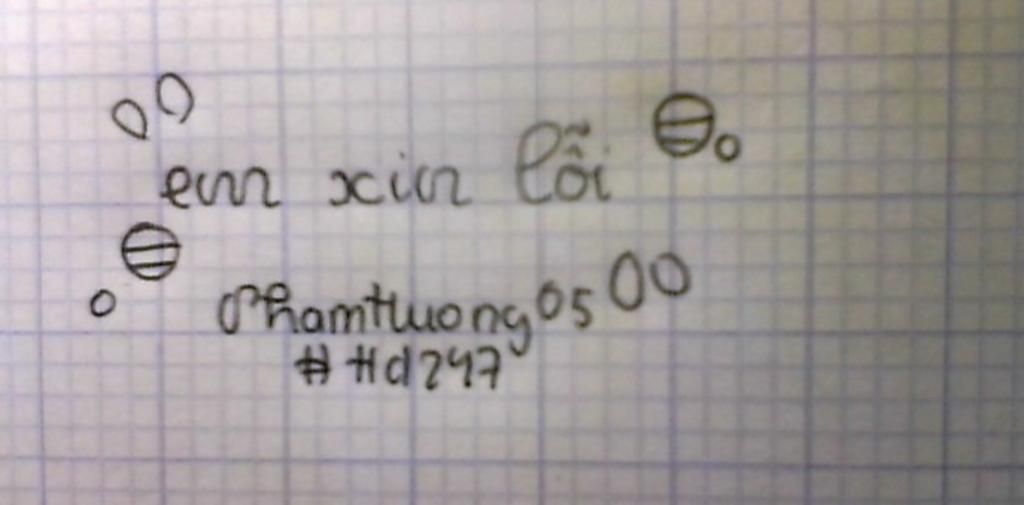 em xin lỗi
Phamthuong05
#Hd247